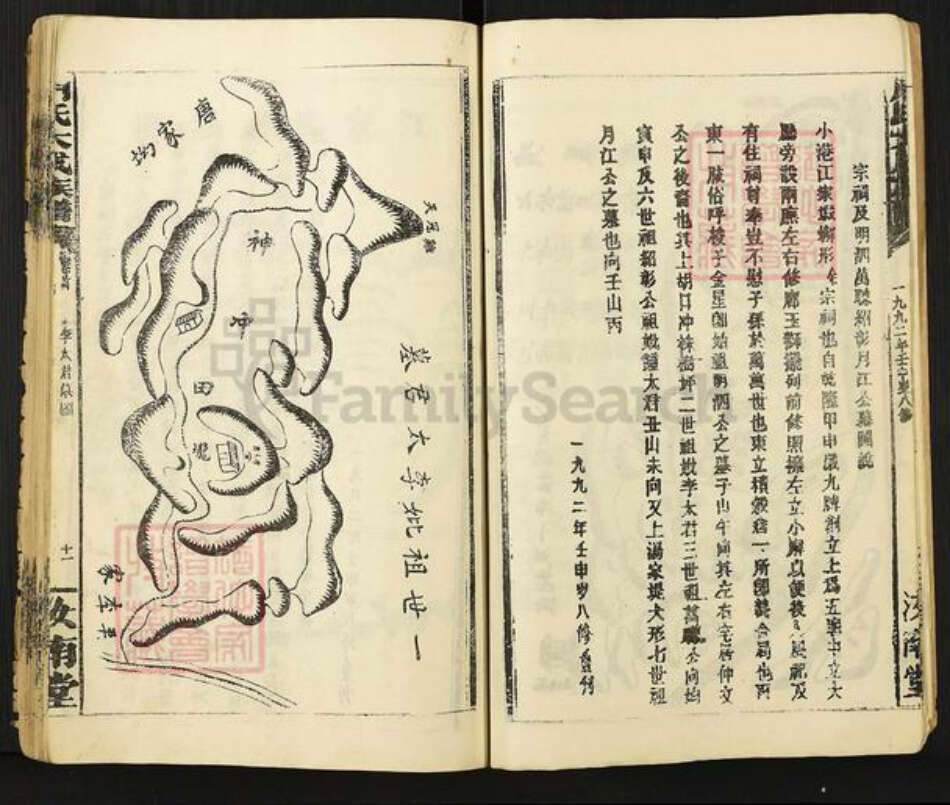 宗祠及明泗萬聰紹彰月江公墓圖說
小港江家嘴獅形 宗祠也自乾隆甲申歲九牌創立上爲五架中立大
廳旁設兩廡左右修廊玉獅擺列前修照牆左立小廨以便後人展祀及
有住祠尊奉豈不慰子孫於萬萬世也東立積穀倉一所卽義倉局也西
東一陂俗呼梭子金星卽始祖明泗公之墓子山午向其左右老塋仲文
公之後裔也其上胡口冲株樹坪二世祖妣李太君三世祖萬聰公向始
寅申及六世祖紹彰公祖妣鍾太君丑山未向又上湯家堤犬形七世祖
月江公之墓也向壬山丙
一九九二年壬申岁八修重刊
一九九二年壬申岁八修
汝南堂
一世祖妣李太君墓
唐家坳
天冠
神冲
田
家
氏大成族譜
李太君墓圖
十一
汝南堂
FamilySearch